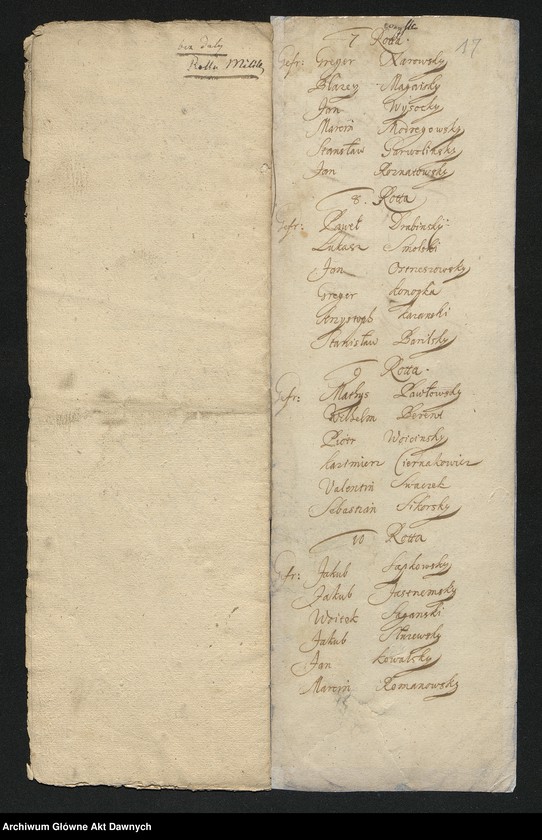 bez daty
Rotta Milit.
17
7 Rotta.
Gefr: Greger Narowsky
Blazey Magalsky
Jan Wysocky
Marcin Modregowsky
Stanisław Garwolinsky
Jan Roznatowsky
8. Rotta
Gefr: Paweł Drabinsky
Lukasz Smolski
Jan Ortneszowsky
Greger Konopka
Krzysztoph Kazanski
Stanisław Berilsky
9 Rotta.
Gefr: Mathys Pawłowsky
Wilhelm Berent
Piotr Woicinsky
Kazimierz Ciernakowicz
Valentin Swaczek
Sebastian Sikorsky
10 Rotta
Gefr: Jakub Sapkowsky
Jakub Jasenemsky
Woicek Saganski
Jakub Sluzewsky
Jan Kowalsky
Marcin Romanowsky
Archiwum Główne Akt Dawnych